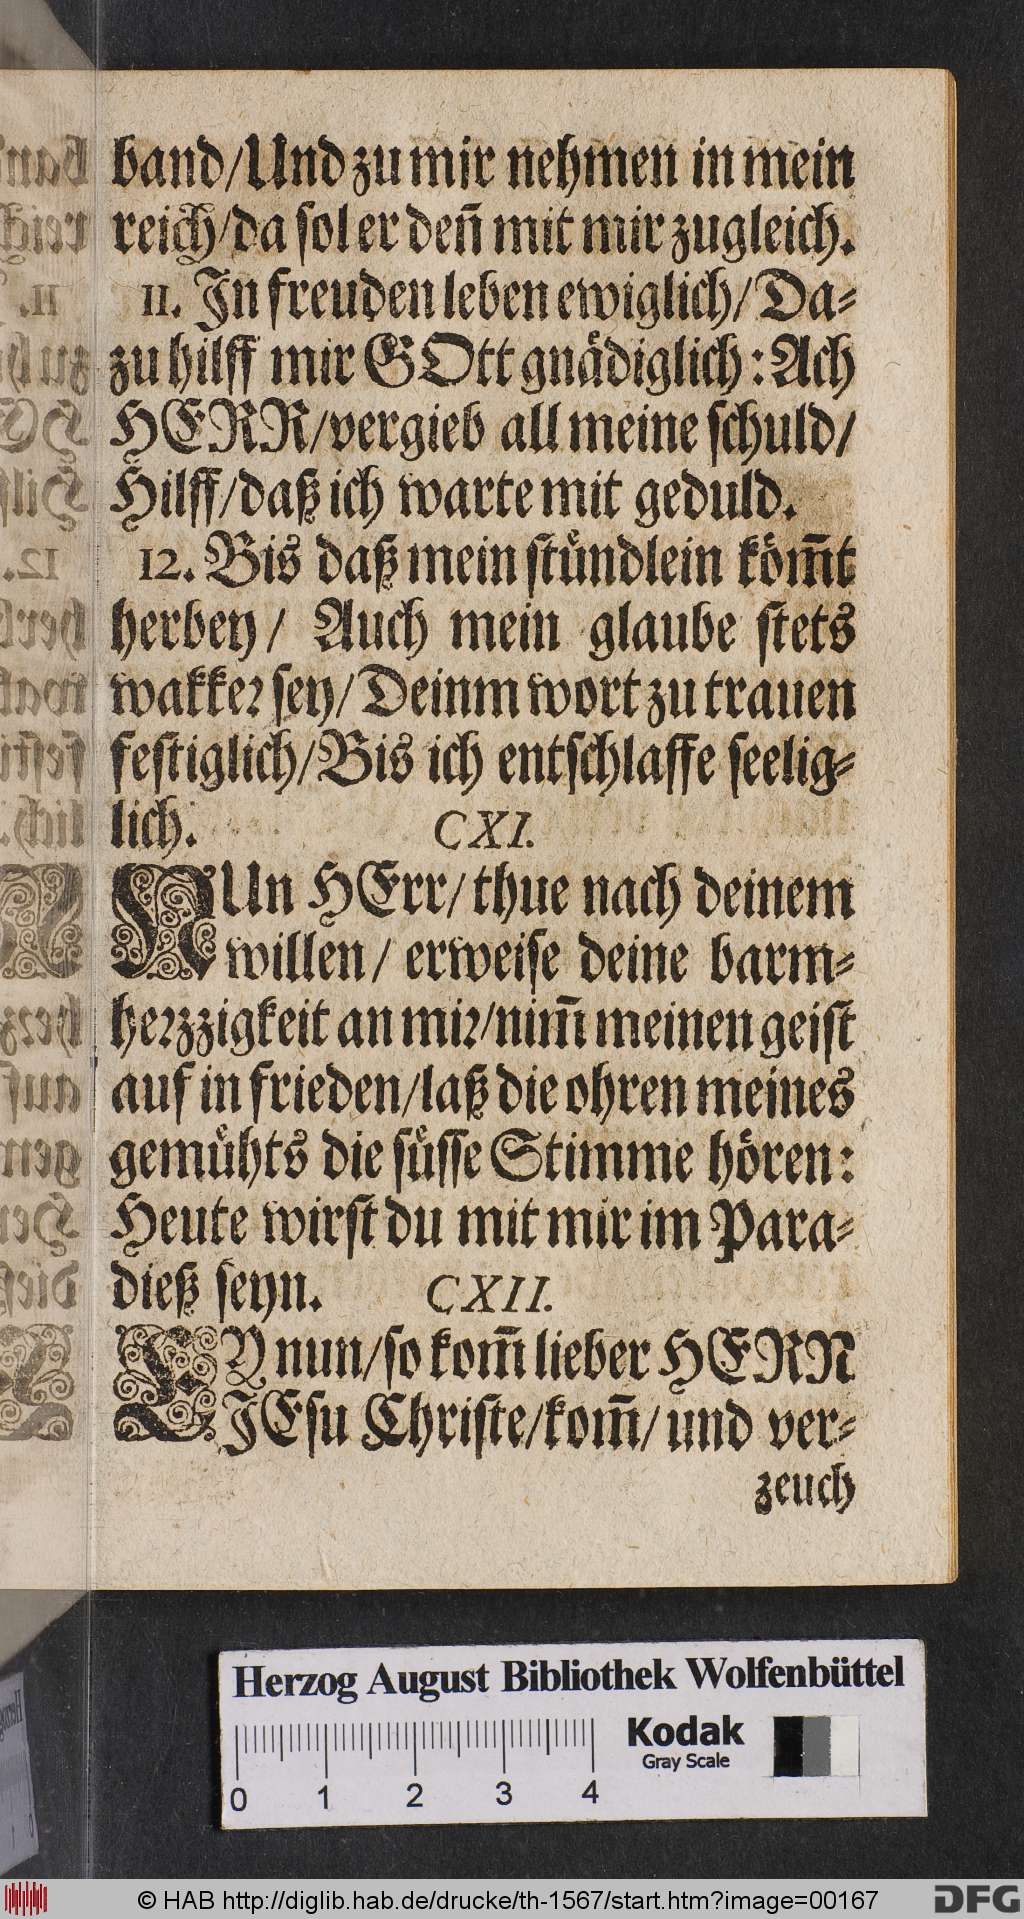 band/Und zu mir nehmen in mein
reich/da sol er deñ mit mir zugleich.
11. In freuden leben ewiglich/Da-
zu hilff mir GOtt gnådiglich: Ach
HERR/vergieb all meine schuld/
Hilff/daß ich warte mit geduld.
12. Bis daß mein stůndlein kŏm̃t
herbey/ Auch mein glaube stets
wakker sey/Deinm wort zu trauen
festiglich/Bis ich entschlaffe seelig-
lich. CXI.
NUn HErr/thue nach deinem
willen/ erweise deine barm-
herzzigkeit an mir/nim̃ meinen geist
auf in frieden/laß die ohren meines
gemůhts die sůsse Stimme hören:
Heute wirst du mit mir im Para-
dieß seyn. CXII.
EY nun/so kom̃ lieber HERR
JEsu Christe/kom̃/und ver-
zeuch
Herzog August Bibliothek Wolfenbüttel
Kodak
Gray Scale
0 1 2 3 4
© HAB http://diglib.hab.de/drucke/th-1567/start.htm?image=00167
DFG